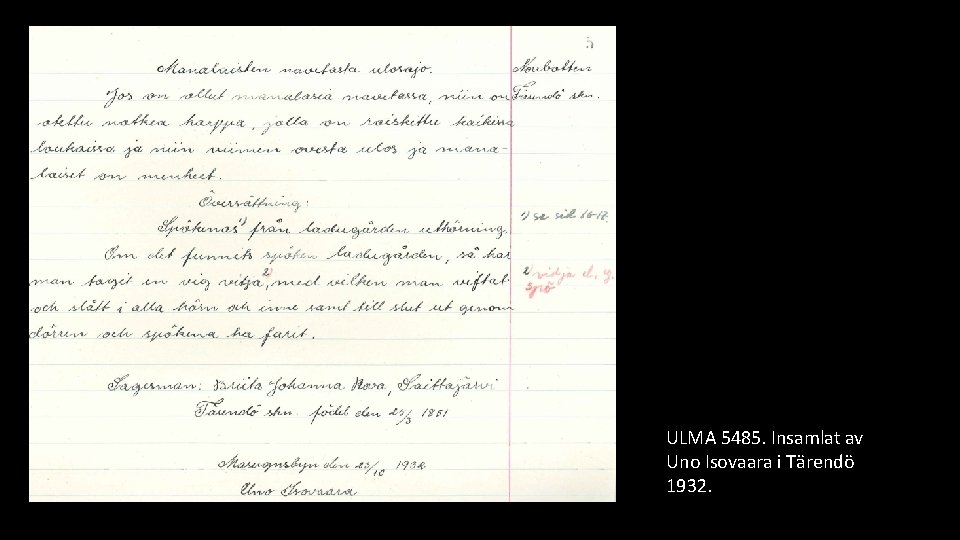 5
Manalaisten navetasta ulosajo.
Norrbotten
Jos on ollut manalasia navetassa, niin on
Tärendö skn.
otettu notkea harppa, jolla on roiskittu kaikissa
loukoissa ja niin viimen ovesta ulos ja mana-
laiset on menheet.
Översättning:
Spökenas 1) från ladugården utkörning.
1) se sid. 16-17.
Om det funnits spöken ladugården, så har
man tagit en vig vidja 2), med vilken man viftat
2) vidja el. g.
spö
och slått i alla hörn och inne samt till slut ut genom
dörren och spökena ha farit.
Sagesman: Briita Johanna Rova, Saittajärvi
Tärendö skn. född den 25/3 1851
Masugnsbyn den 23/10 1932
Uno Isovaara
ULMA 5485. Insamlat av
Uno Isovaara i Tärendö
1932.